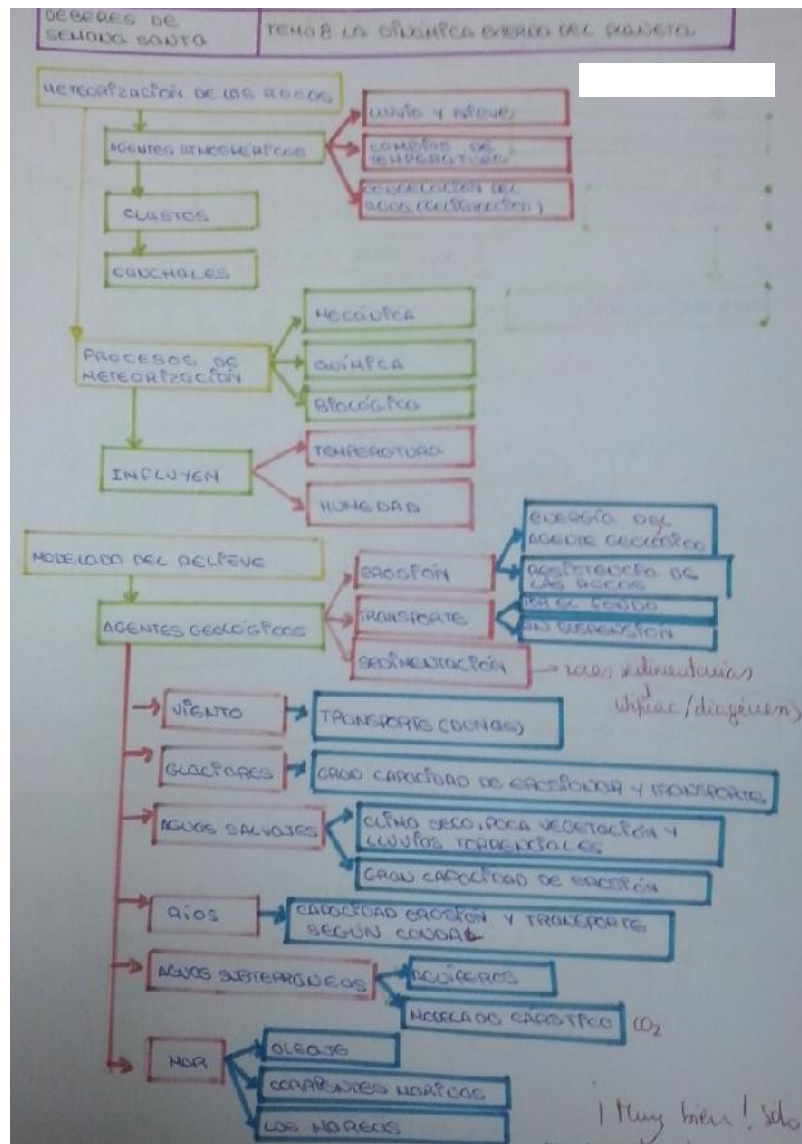 DEBERES DE
SEMANA SANTA
TEMA 8 LA DINÁMICA EXTERNA DEL PLANETA
METEORIZACIÓN DE LAS ROCAS
AGENTES ATMOSFÉRICOS
LLUVIA Y NIEVE
CAMBIOS DE
TEMPERATURA
CONGELACIÓN DEL
AGUA (GELIFRACCIÓN)
CLASTOS
CANCHALES
PROCESOS DE
METEORIZACIÓN
MECÁNICA
QUÍMICA
BIOLÓGICA
INFLUYEN
TEMPERATURA
HUMEDAD
MODELADO DEL RELIEVE
AGENTES GEOLÓGICOS
EROSIÓN
ENERGÍA DEL
AGENTE GEOLÓGICO
RESISTENCIA DE
LAS ROCAS
TRANSPORTE
POR EL FONDO
EN SUSPENSIÓN
SEDIMENTACIÓN
rocas sedimentarias
diagénesis)
VIENTO
TRANSPORTE (DUNAS)
GLACIARES
GRAN CAPACIDAD DE EROSIONAR Y TRANSPORTE
AGUAS SALVAJES
CLIMA SECO, POCA VEGETACIÓN Y
LLUVIAS TORRENCIALES
GRAN CAPACIDAD DE EROSIÓN
RÍOS
CAPACIDAD EROSIÓN Y TRANSPORTE
SEGÚN CAUDAL
AGUAS SUBTERRÁNEAS
ACUÍFEROS
MODELADO CÁRSTICO CO2
MAR
OLEAJE
CORRIENTES MARINAS
LAS MAREAS
¡Muy bien! Sólo